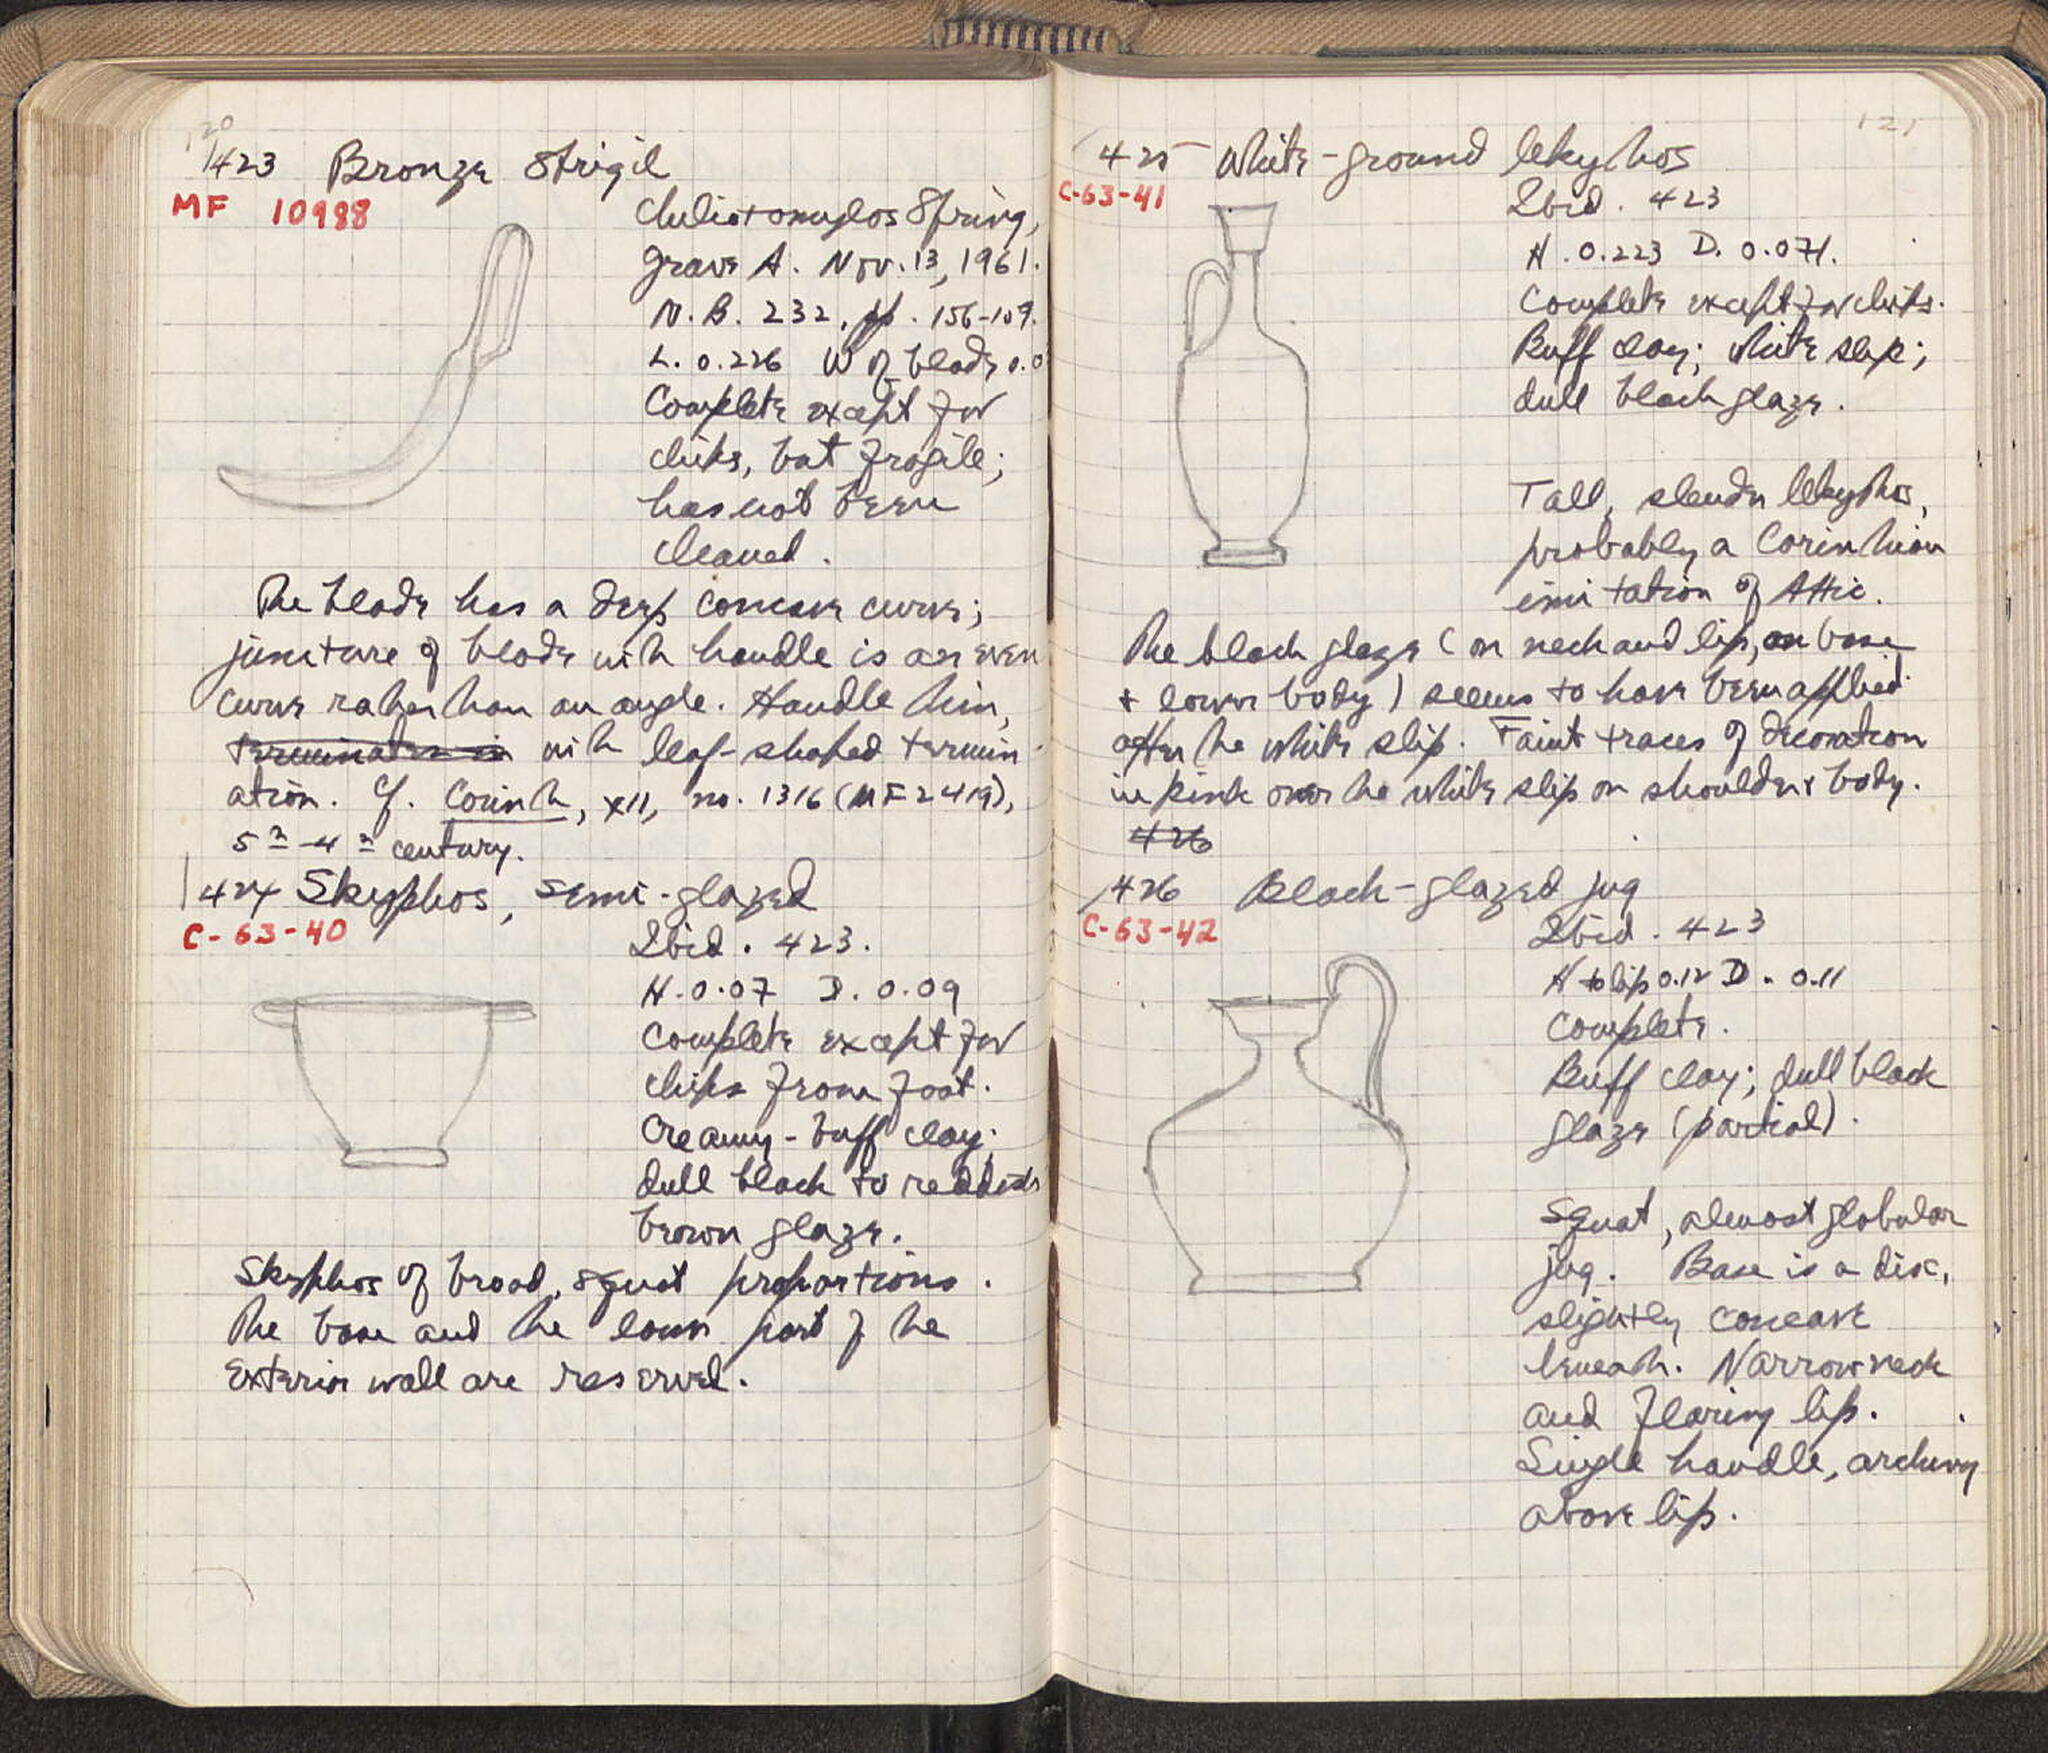 120
423 Bronze Strigil
MF 10988
Cheliotomylos Spring,
Grave A. Nov. 13, 1961.
N.B. 232, pp. 156-159.
L. 0.226 W of blade 0.0
Complete except for
chips, but fragile;
has not been
cleaned.
The blade has a deep concave curve;
juncture of blade with handle is an even
curve rather than an angle. Handle thin,
terminates in with leaf-shaped termin-
ation. Cf. Corinth, XII, no. 1316 (MF 2419),
5th-4th century.
424 Skyphos, semi-glazed
C-63-40
Ibid. 423.
H. 0.07 D. 0.09
Complete except for
chips from foot.
Creamy-buff clay;
dull black to reddish
brown glaze.
Skyphos of broad, squat proportions.
The base and the lower part of the
exterior wall are reserved.
121
425 White-ground lekythos
C-63-41
Ibid. 423
H. 0.223 D. 0.071.
Complete except for chips.
Buff clay; white slip;
dull black glaze.
Tall, slender lekythos,
probably a Corinthian
imitation of Attic.
The black glaze (on neck and lip, on base
+ lower body) seems to have been applied
after the white slip. Faint traces of decoration
in pink over the white slip on shoulder + body.
426
426 Black-glazed jug
C-63-42
Ibid. 423
H to lip 0.12 D. 0.11
Complete.
Buff clay; dull black
glaze (partial).
Squat, almost globular
jug. Base is a disc,
slightly concave
beneath. Narrow neck
and flaring lip.
Single handle, arching
above lip.